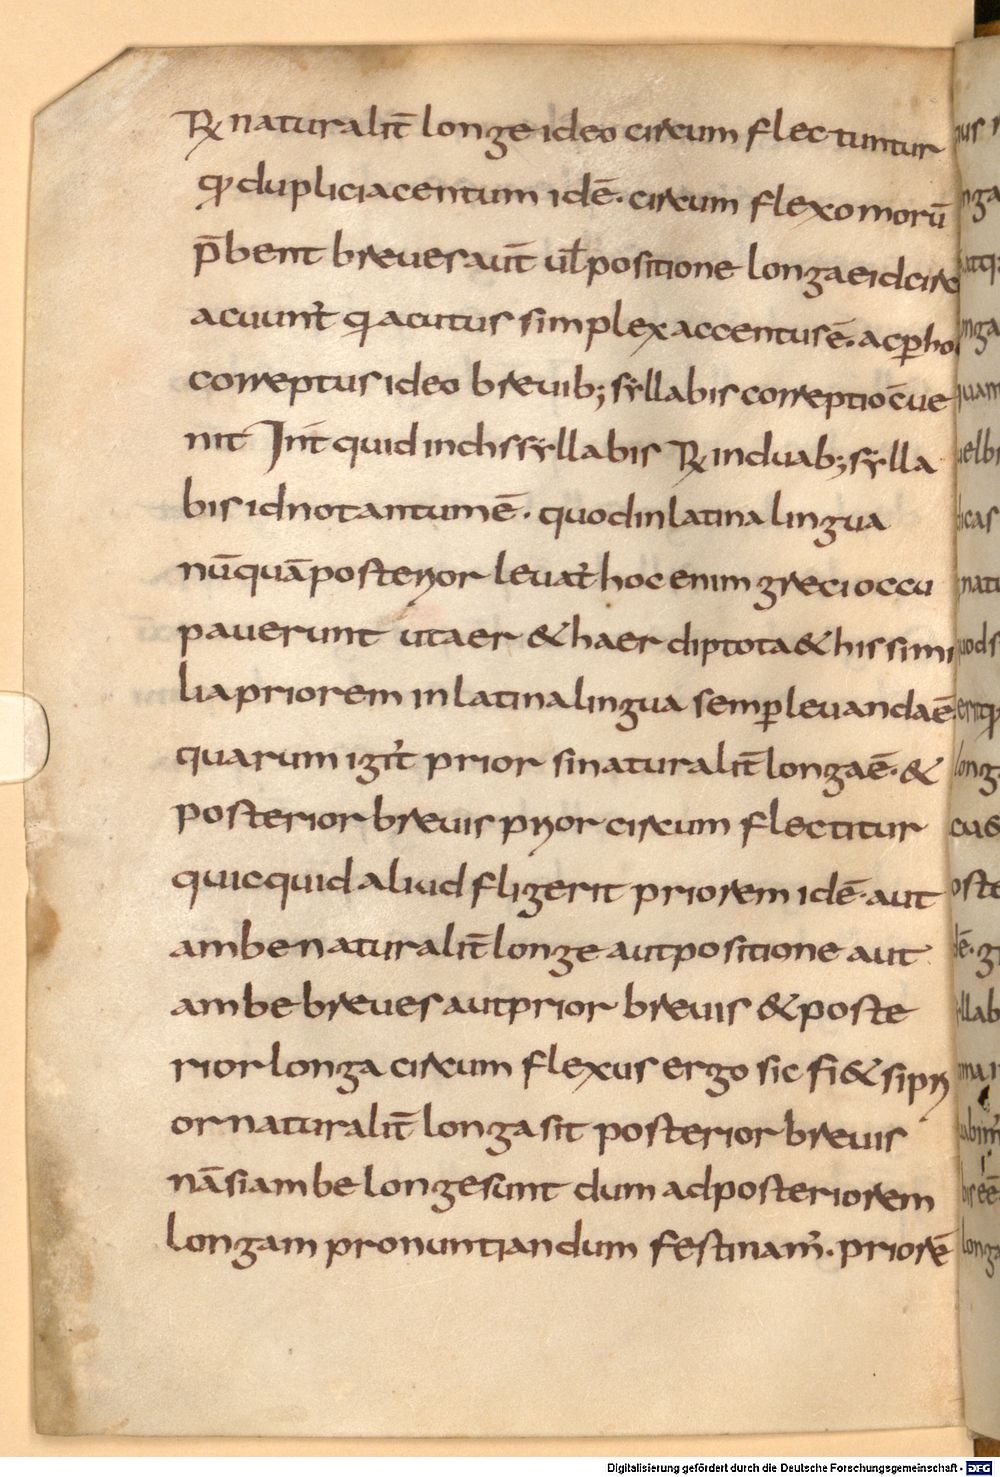 ℞ naturalit̄ longe ideo circum flectuntur
qꝫ dupliciacentum idē· circum flexo morū
p̄bent breues aut̄ ul̄ positione longae idcirc
acuunt̄ qi acutus simplex accentus ē· ac ꝑ ho
correptus ideo breuib; syllabis correptio c̄ue
nit Int̄ quid in chs syllabis ℞ in duab; sylla
bis id notantum ē· quod in latina lingua
nū quā posterior leuat̄ hoc enim greci occu
pauerunt ut aer & haer diptota & his simi
lia priorem in latina lingua semꝑ leuanda ē·
quarum igit̄ prior si naturalit̄ longa ē· &
posterior breuis prior circum flectitur
quicquid aliud fligerit priorem id ē· aut
ambe naturalit̄ longe aut positione aut
ambe breues aut prior breuis & poste
rior longa circum flexus ergo sic fi& si pri
or naturalit̄ longa sit posterior breuis
nā si ambe longe sunt dum ad posteriorem
longam pronuntiandum festinam̄· priorē
Digitalisierung gefördert durch die Deutsche Forschungsgemeinschaft - DFG